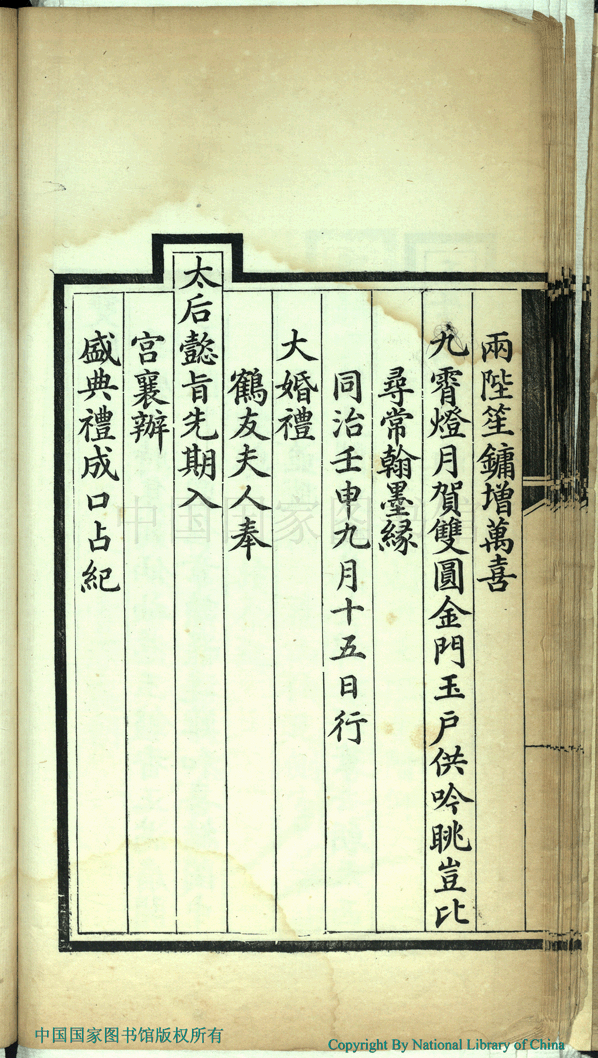 兩陛笙鏞增萬喜
九霄燈月賀雙圓金門玉戶供吟眺豈比
尋常翰墨緣
同治壬申九月十五日行
大婚禮
鶴友夫人奉
太后懿旨先期入
宮襄辦
盛典禮成口占紀
中国国家图书馆
中国国家图书馆版权所有
Copyright By National Library of China